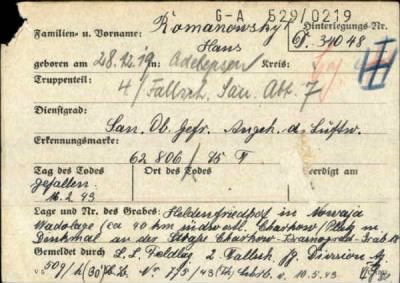 G-A 529/0219
Familien- u. Vorname: Romanowsky Hinterlegungs-Nr.
Hans D. 34048
geboren am 28.12.19 in Adelebsen Kreis:
Truppenteil:
4/Fallsch. San. Abt. 7
III
Dienstgrad:
San. Ob. Gefr. Angeh. d. Luftw.
Erkennungsmarke:
62 806/75
Tag des Todes Ort des Todes Beerdigt am
gefallen
16.2.43
Lage und Nr. des Grabes: Heldenfriedhof in Nowaja
Wadolaga (ca 40 km südwestl. Charkow/Platz m
Denkmal an der Straße Charkow-Krasnograd-Grab
Gemeldet durch 2. Fallsch. Jg. Division
v. 10.5.43